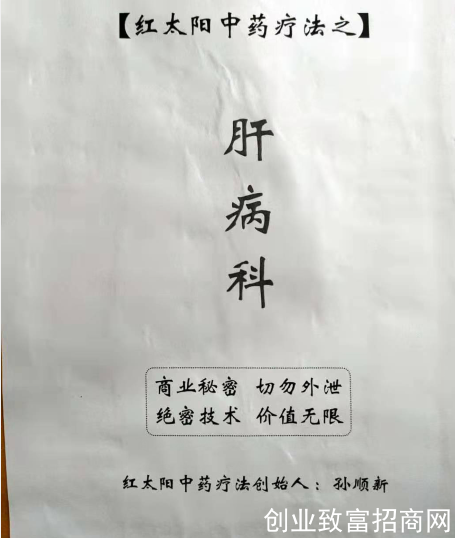 【红太阳中药疗法之】
肝病科
商业秘密 切勿外泄
绝密技术 价值无限
红太阳中药疗法创始人：孙顺新
创业致富招商网